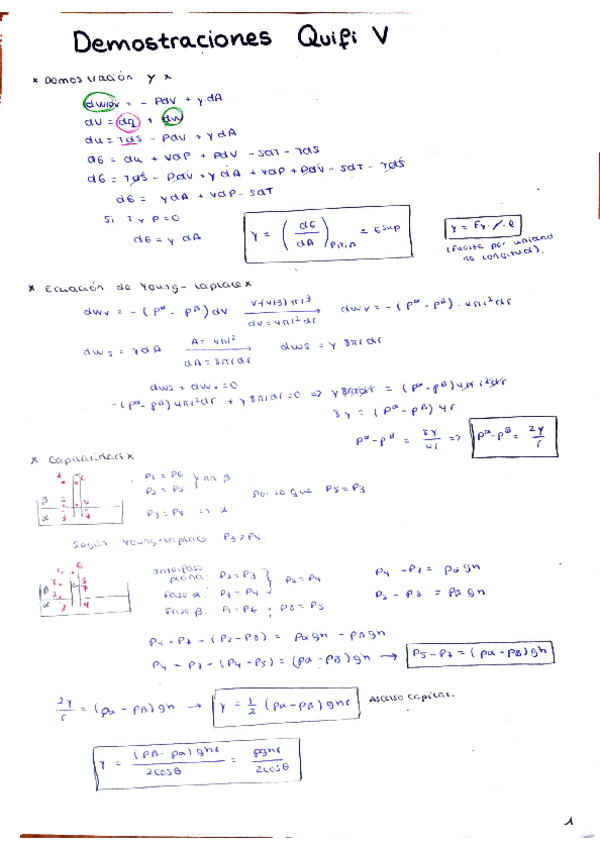 Demostraciones Quifi V
* Demostración γ *
dwrev = - PdV + γdA
dU = dq + dw
dU = TdS - PdV + γdA
dG = dU + VdP + PdV - SdT - TdS
dG = TdS - PdV + γdA + VdP + PdV - SdT - TdS
dG = γdA + VdP - SdT
Si T y P = 0
dG = γ dA
γ = (dG/dA)P,T,n = Gsup
γ = Fγ/·l
(fuerza por unidad de longitud).
* Ecuación de Young-Laplace *
dwv = -(Pα - Pβ)dV V=(4/3)πr³ dV=4πr²dr dwv = -(Pα - Pβ)·4πr²dr
dws = γdA A=4πr² dA=8πrdr dws = γ8πrdr
dws + dwv = 0
-(Pα - Pβ)4πr²dr + γ8πrdr = 0 => γ8πrdr = (Pα - Pβ)4πr²dr
8γ = (Pα - Pβ)4r
Pα - Pβ = 8γ/4r => Pα - Pβ = 2γ/r
* Capilaridad *
P1 = P6
P2 = P5 } en β
P3 = P4 => α
por lo que P5 = P3
Según Young-Laplace P3 > P4.
Interfase plana: P2 = P3
fase α: P3 = P4 } P2 = P4
fase β: P1 = P6 ; P8 = P5
P4 - P7 = ραgh
P2 - P8 = ρβgh
P4 - P7 - (P2 - P8) = ραgh - ρβgh
P4 - P7 - (P4 - P5) = (ρα - ρβ)gh → P5 - P7 = (ρα - ρβ)gh
2γ/r = (ρα - ρβ)gh → γ = 1/2 (ρα - ρβ)ghr Ascenso capilar.
γ = (ρβ - ρα)ghr / 2cosθ = ρghr / 2cosθ
1